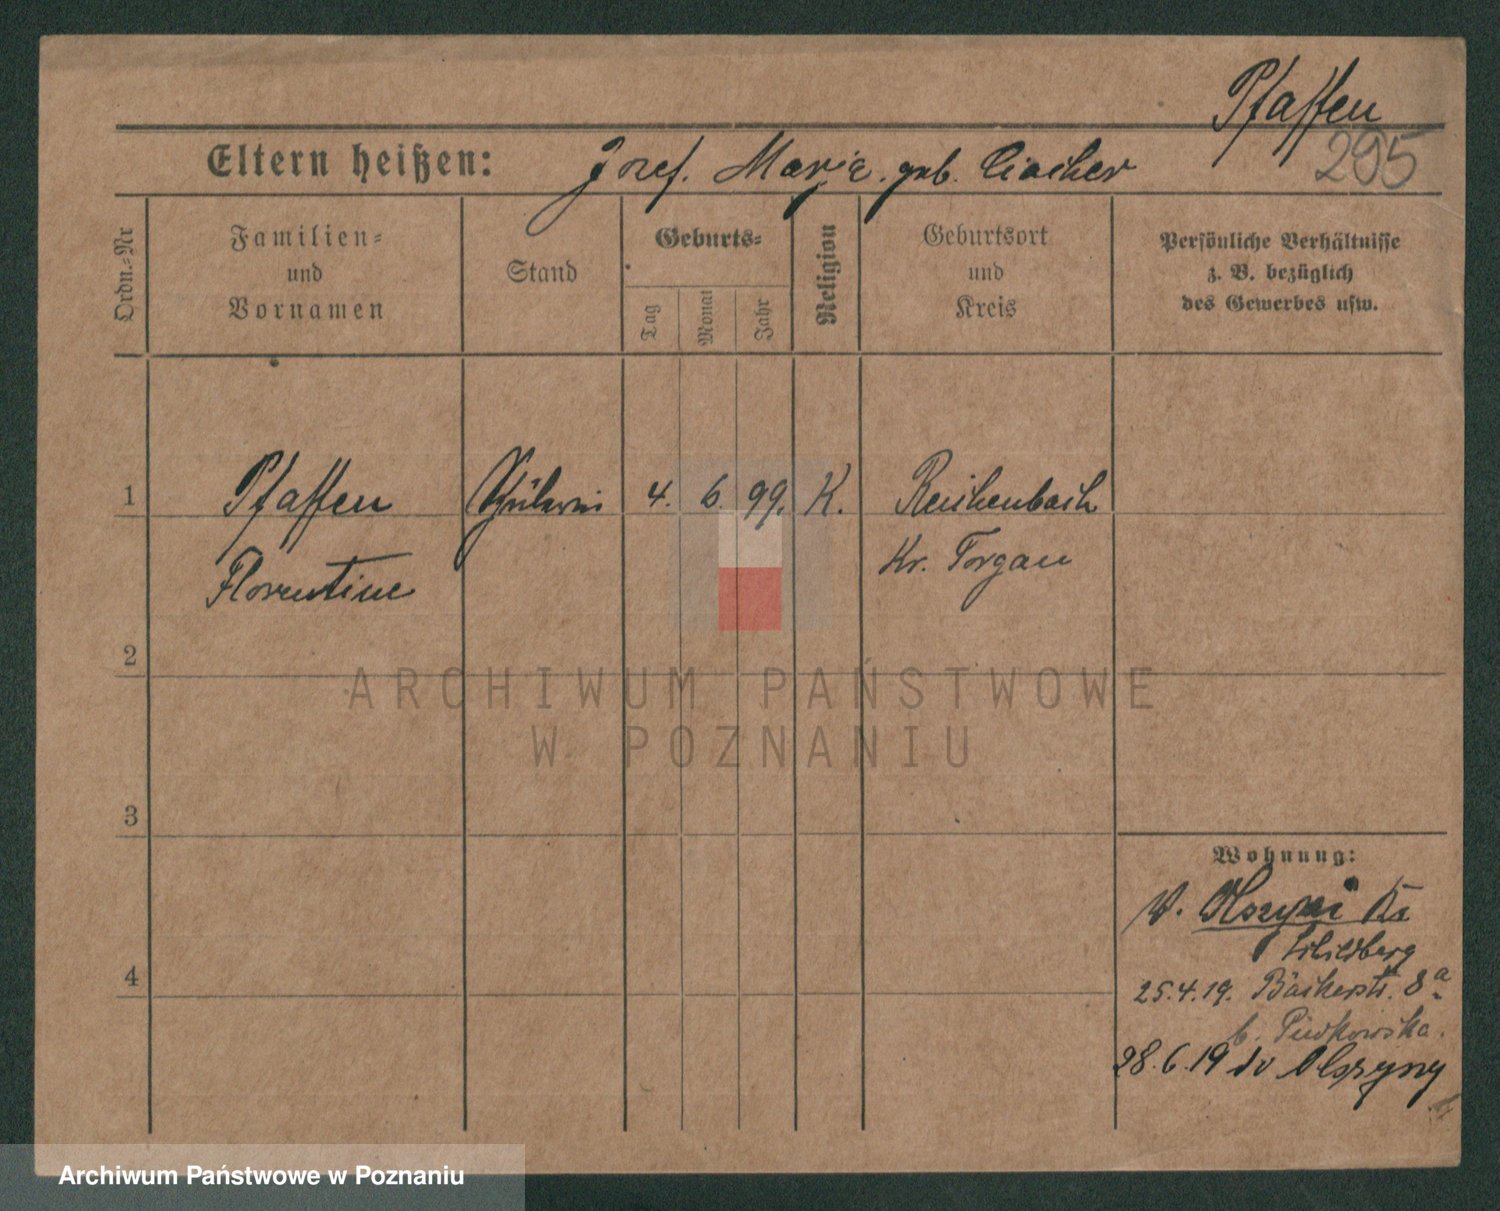 Pfaffen
295
Eltern heißen: Josef. Marie. geb. Ciocher
Ordn.-Nr
Familien-
und
Vornamen
Stand
Geburts-
Tag
Monat
Jahr
Religion
Geburtsort
und
Kreis
Persönliche Verhältnisse
z. B. bezüglich
des Gewerbes usw.
1 Pfaffen Schülerin 4. 6. 99. K. Reichenbach
Florentine Kr. Torgau
2
ARCHIWUM PAŃSTWOWE
W POZNANIU
3
Wohnung:
v. Kr
Schildberg
4
25.4.19. Bäckerstr. 8a
b. Piwkowska.
28.6.19 do Olszyny
Archiwum Państwowe w Poznaniu